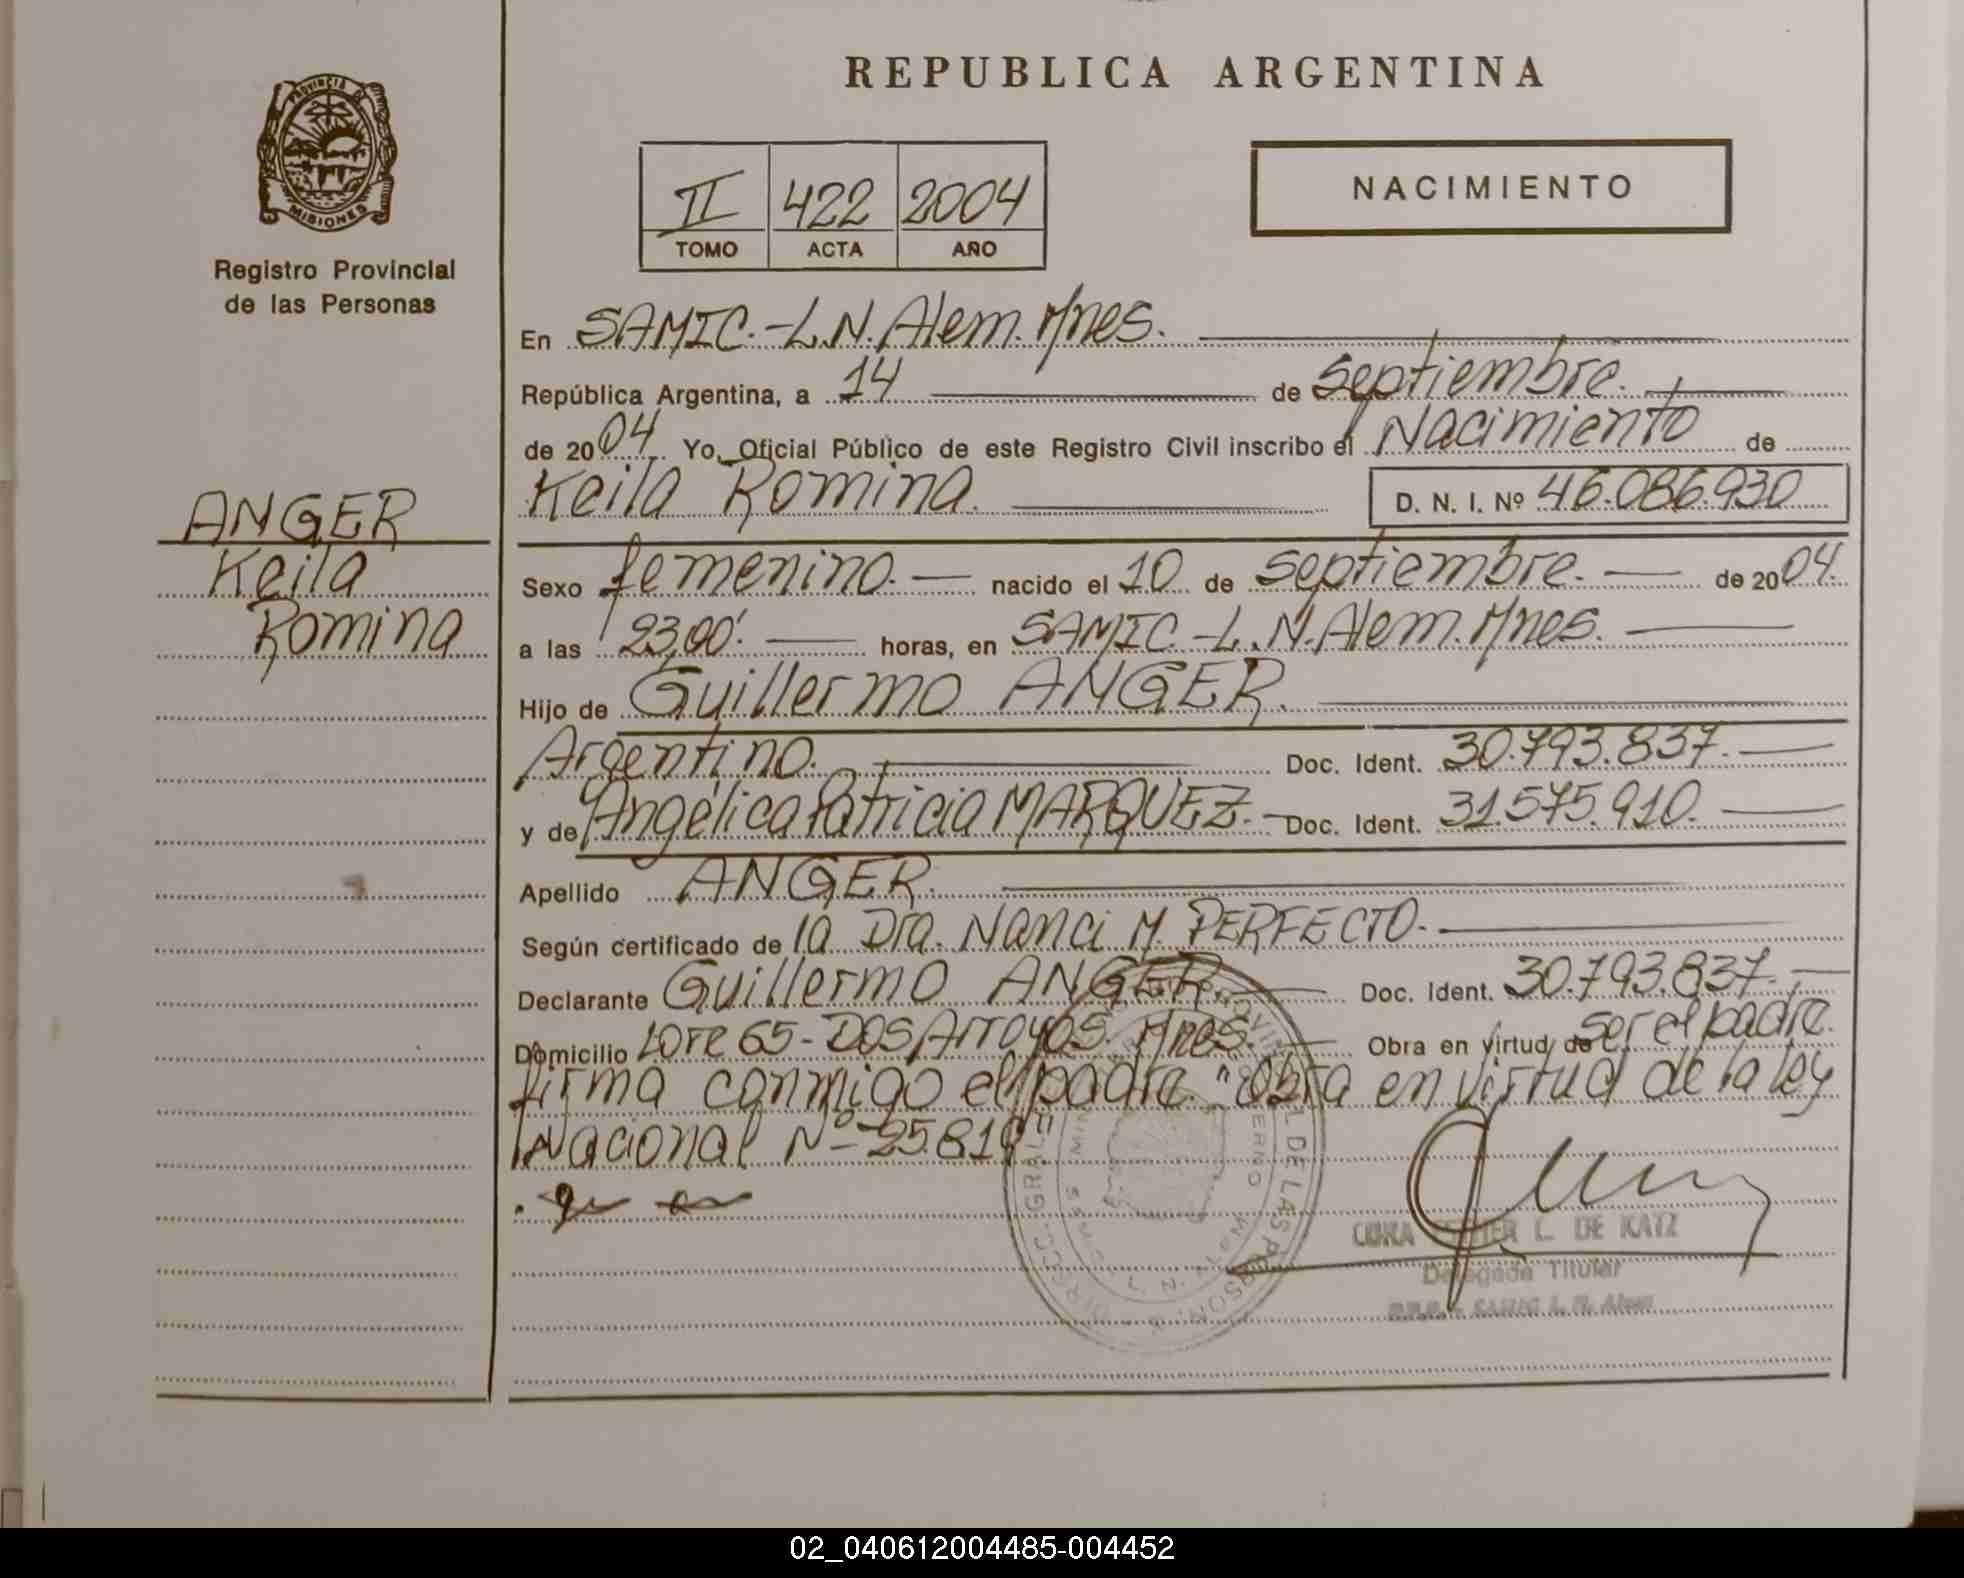 REPUBLICA ARGENTINA
PROVINCIA DE MISIONES
Registro Provincial
de las Personas
II 422 2004
TOMO ACTA AÑO
NACIMIENTO
En SAMIC.-L.N.Alem.Mnes.
República Argentina, a 14 de Septiembre.
de 2004. Yo, Oficial Público de este Registro Civil inscribo el Nacimiento de
Keila Romina. D. N. I. Nº 46.086.930
ANGER
Keila
Romina
Sexo femenino. nacido el 10 de septiembre. de 2004.
a las 23,00'. horas, en SAMIC.-L.N.Alem.Mnes.
Hijo de Guillermo ANGER.
Argentino. Doc. Ident. 30.793.837.
y de Angélica Patricia MARQUEZ. Doc. Ident. 31.575.910.
Apellido ANGER.
Según certificado de la Dra. Nanci M. PERFECTO.
Declarante Guillermo ANGER. Doc. Ident. 30.793.837.
Domicilio Lote 65-Dos Arroyos. Mnes. Obra en virtud de ser el padre.
firma conmigo el padre. "Obra en virtud de la ley
Nacional Nº 25.819"
L. DE KATZ
Delegada Titular
SAMIC L. N. Alem
02_040612004485-004452